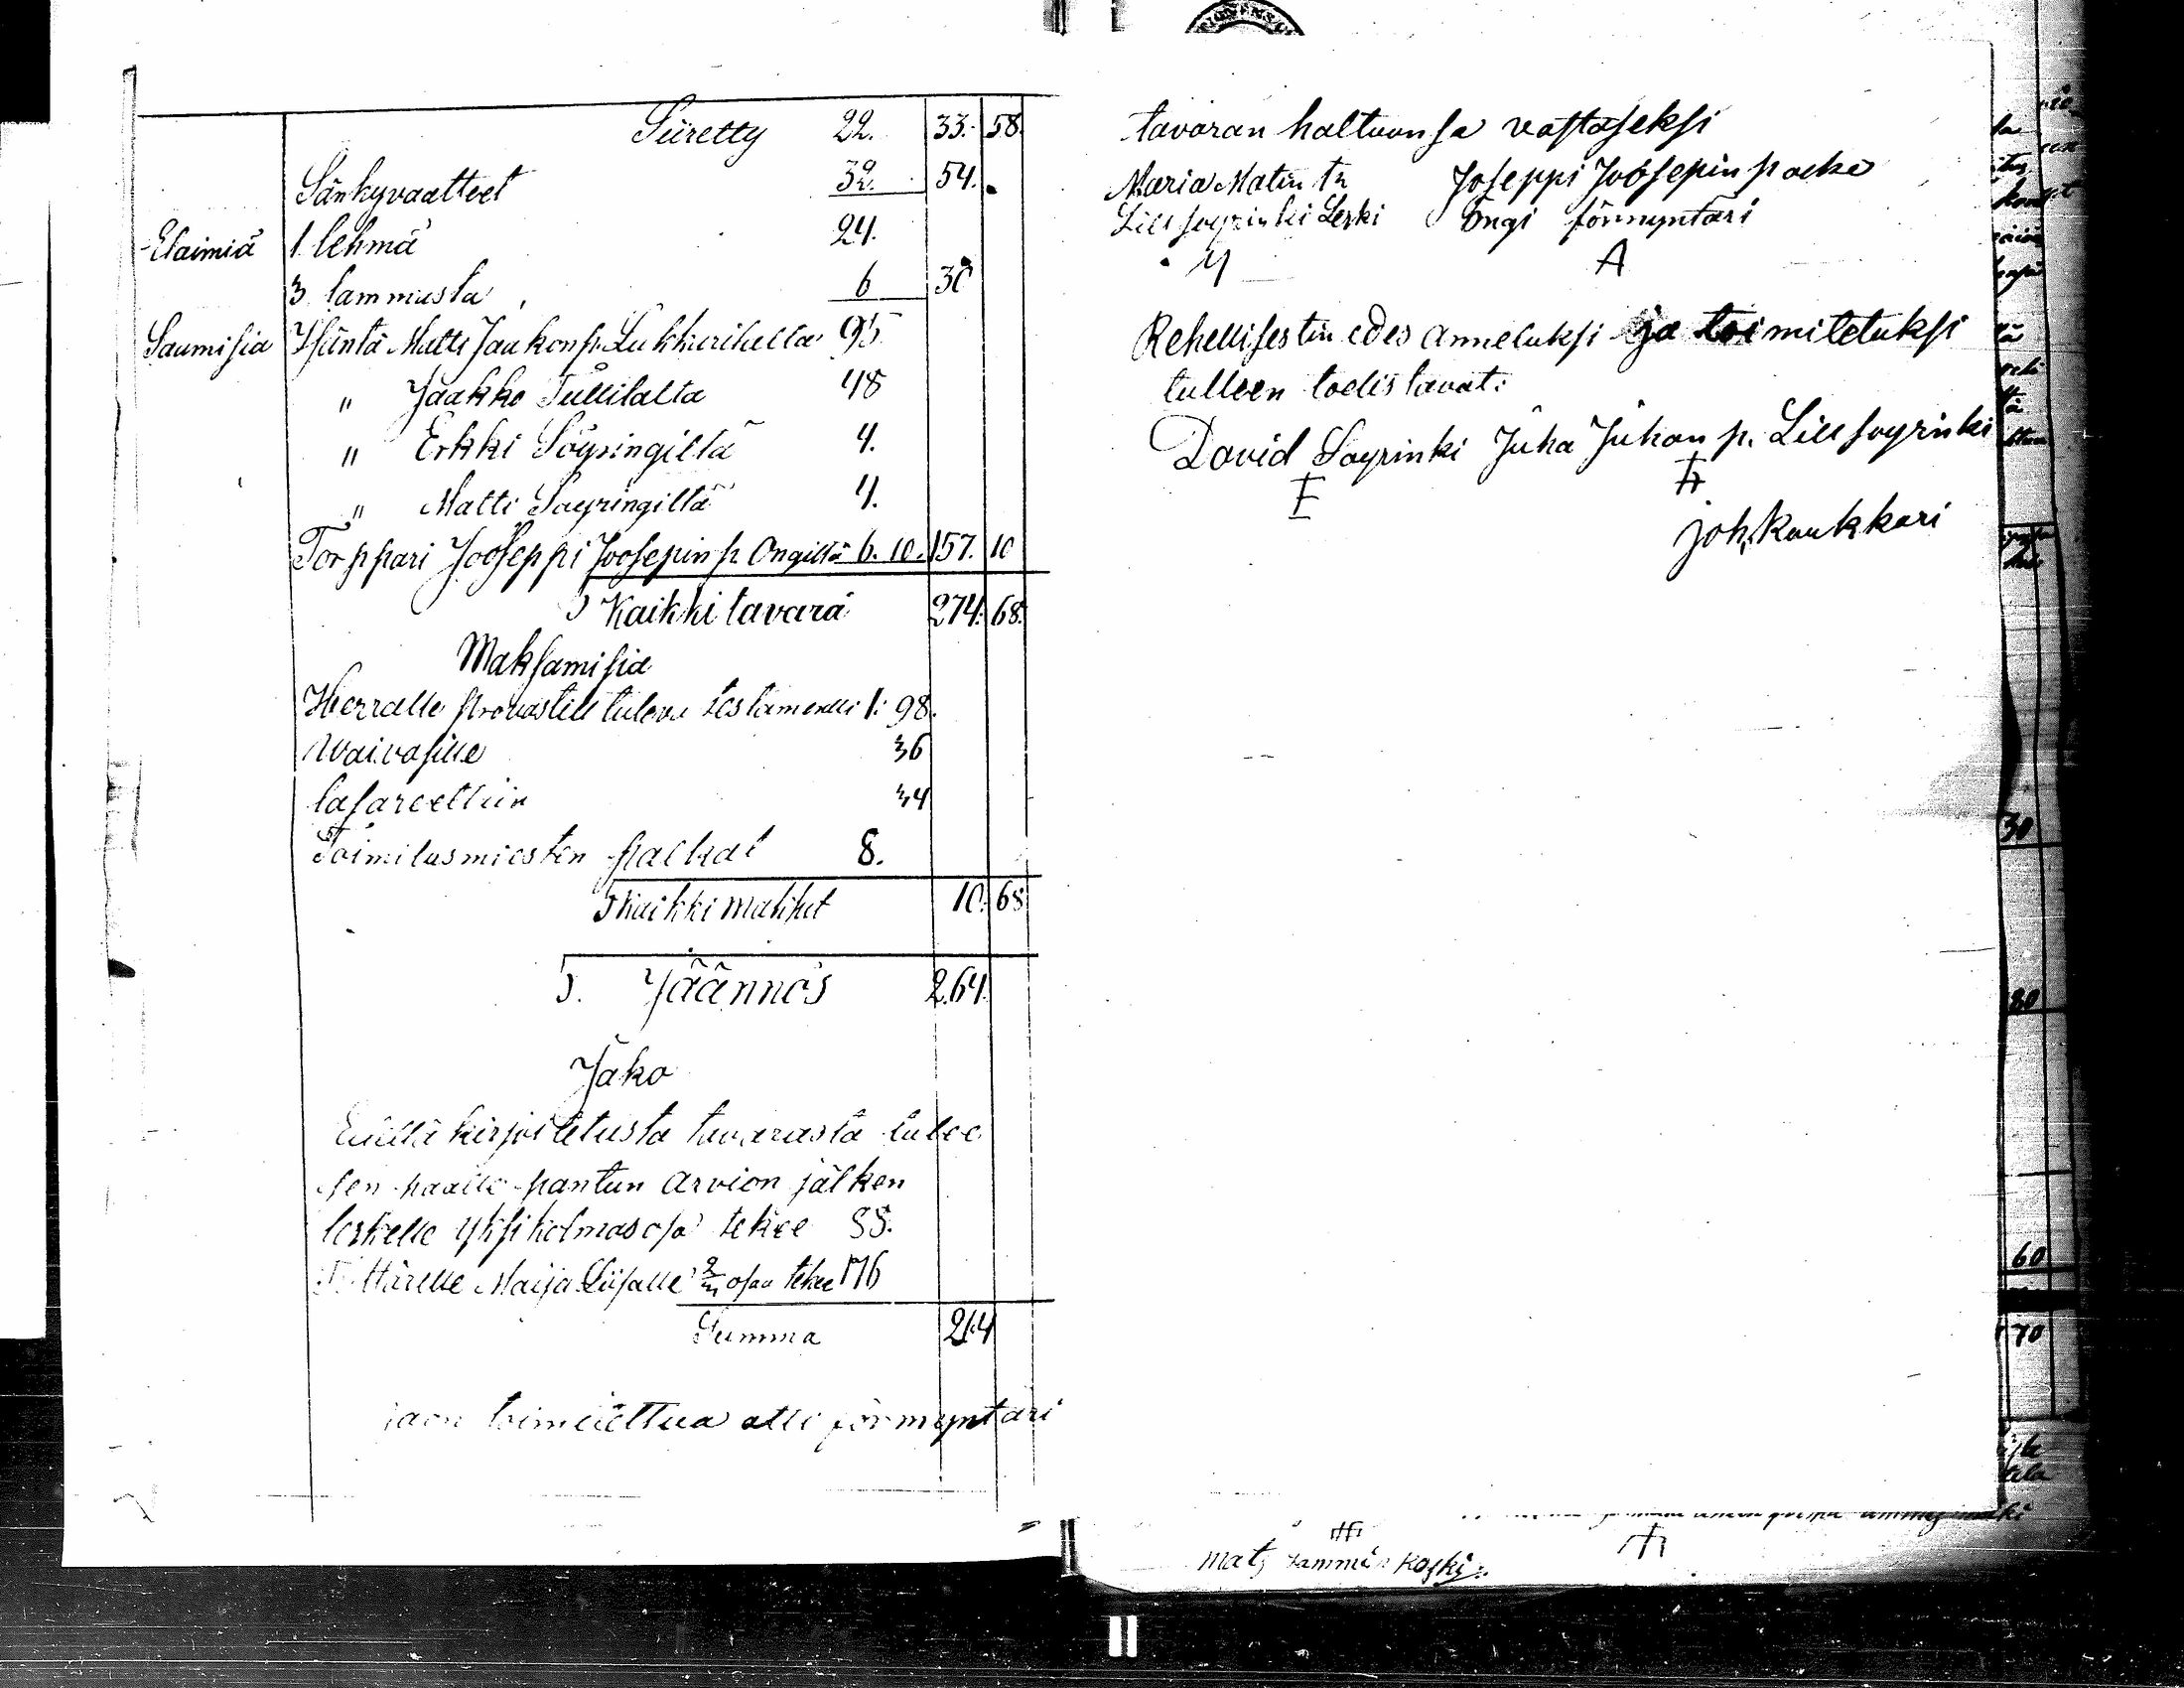 Siiretty 22. 33. 58.
Sänkyvaatteet 32. 54.
Elaimiä 1 lehmä 24.
3 lammasta 6 30
Saamisia Isäntä Matti Jaakonp. Lukkarilalla 95
" Jaakko Tullilalta 48
" Erkki Söyringiltä 4.
" Matti Söyringiltä 4.
Torppari Jooseppi Joosepin p. Ongilta 6. 10. 157. 10
Kaikki tavara 274. 68.
Maksamisia
Herralle provastille tuleva testamentti 1: 98.
Waivasille 36
lasareettiin 34
Toimitusmiesten palkat 8.
Kaikki makset 10. 68
Jäännös 264.
Jako
Edellä kirjoitetusta tavarasta tulee
sen päälle pantun arvion jälken
leskelle yksi kolmas osa tekee 88.
Tyttärelle Maija Liisalle 2/3 osaa tekee 176
Summa 264
jaon toimitettua otti förmyntäri
tavaran haltuunsa vastaseksi
Maria Matin tr Joseppi Joosepin poeka
Lillsoyrinki Leski Öngi förmyntäri
M A
Rehellisestin edes annetuksi ja toimitetuksi
tulleen todistavat:
David Soyrinki Juha Juhan p. Lillsoyrinki
Joh. Kaukkari
Mats Tamminkoski